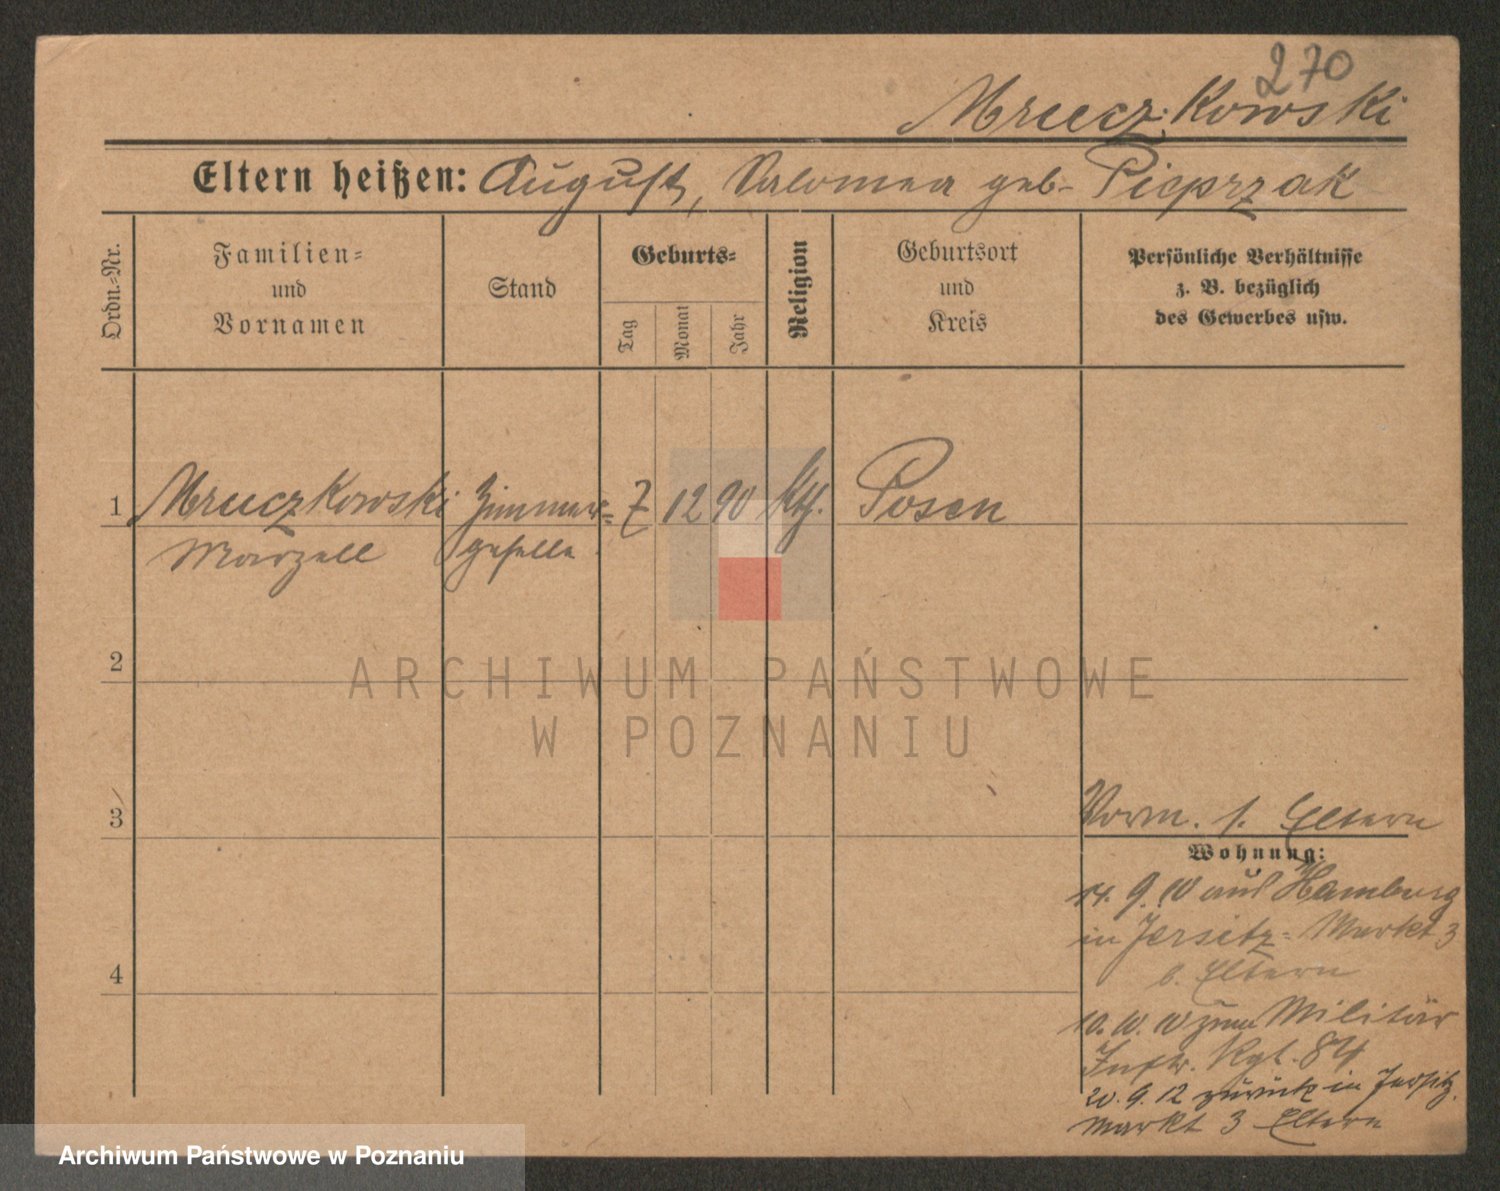 270
Mruczkowski
Eltern heißen: August, Salomea geb. Pieprzak
Ordn.-Nr.
Familien-
und
Vornamen
Stand
Geburts-
Tag
Monat
Jahr
Religion
Geburtsort
und
Kreis
Persönliche Verhältnisse
z. B. bezüglich
des Gewerbes usw.
1 Mruczkowski Zimmer- 7 12 90 kth. Posen
Marzell geselle
2
ARCHIWUM PAŃSTWOWE
W POZNANIU
3
Vorm. s. Eltern
Wohnung:
14. 9. 10 aus Hamburg
in Jersitz- Markt 3
b. Eltern
4
10. 10. 10 zum Militär
Inftr. Rgt. 84
20. 9. 12 zurück in Jersitz.
Markt 3 Eltern
Archiwum Państwowe w Poznaniu